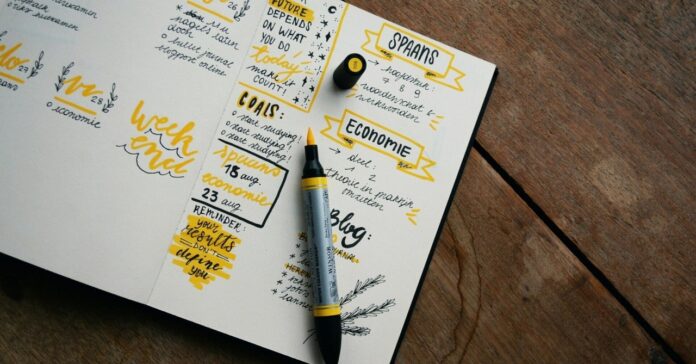 26
nagels laten
doch
bullet journal
blogpost online
vr 28
economie
Week
end
FUTURE
DEPENDS
ON WHAT
YOU DO
today
make it
COUNT!
GOALS:
start studying!
start studying!
start studying!
spaans
18 aug.
economie
23 aug.
REMINDER:
your
results
DON'T
define
you
SPAANS
hoofdstuk:
7 8 9
woordenschat &
werkwoorden
ECONOMIE
deel:
1 2
theorie in praktijk
omzetten
Blog: